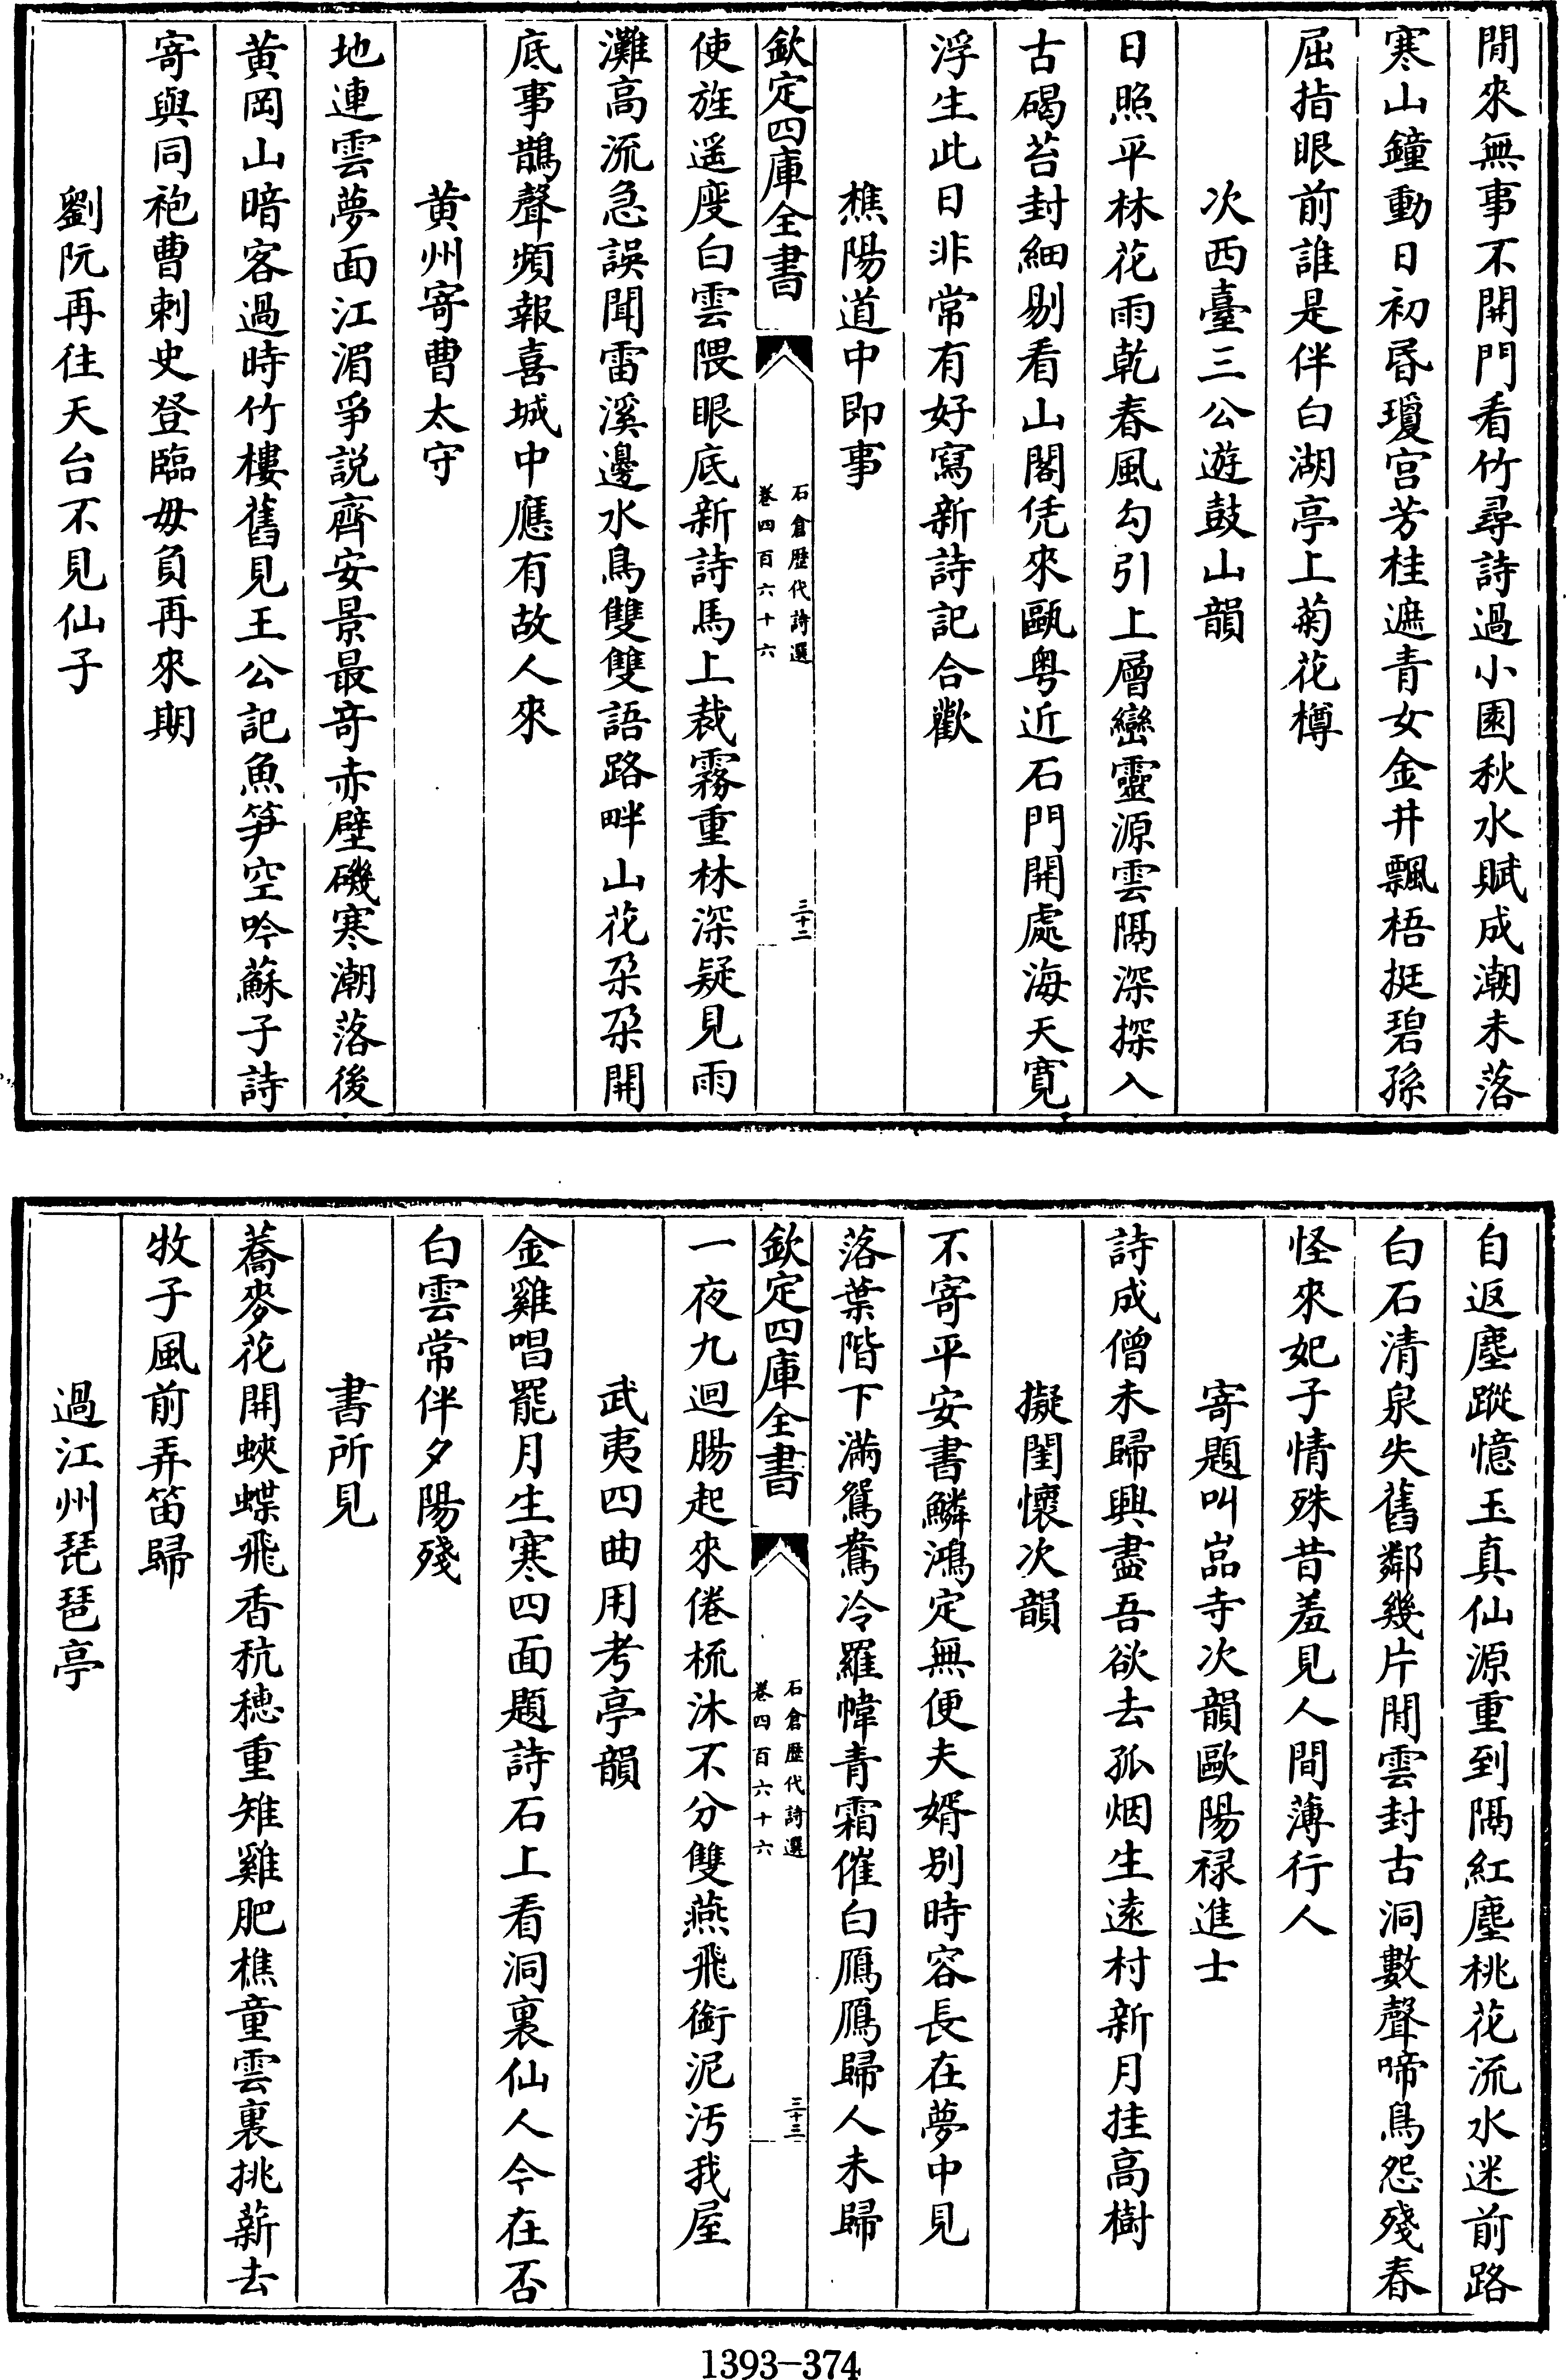 閒來無事不開門看竹尋詩過小園秋水賦成潮未落
寒山鐘動日初昏瓊宫芳桂遮青女金井飄梧挺碧孫
屈指眼前誰是伴白湖亭上菊花樽
次西臺三公遊鼓山韻
日照平林花雨乾春風勾引上層巒靈源雲隔深探入
古碣苔封細剔看山閣凭來甌粤近石門開處海天寛
浮生此日非常有好寫新詩記合歡
樵陽道中即事
欽定四庫全書
石倉歴代詩選
卷四百六十六
三十二
使旌遥度白雲隈眼底新詩馬上裁霧重林深疑見雨
灘高流急誤聞雷溪邊水鳥雙雙語路畔山花朶朶開
底事鵲聲頻報喜城中應有故人來
黄州寄曹太守
地連雲夢面江湄爭説齊安景最竒赤壁磯寒潮落後
黄岡山暗客過時竹樓舊見王公記魚笋空吟蘇子詩
寄與同袍曹刺史登臨毋負再來期
劉阮再往天台不見仙子
自返塵蹤憶玉真仙源重到隔紅塵桃花流水迷前路
白石清泉失舊鄰幾片閒雲封古洞數聲啼鳥怨殘春
怪來妃子情殊昔羞見人間薄行人
寄題叫嵓寺次韻歐陽禄進士
詩成僧未歸興盡吾欲去孤烟生遠村新月挂高樹
擬閨懷次韻
不寄平安書鱗鴻定無便夫婿别時容長在夢中見
落葉階下滿鴛鴦冷羅幃青霜催白鴈鴈歸人未歸
欽定四庫全書
石倉歴代詩選
卷四百六十六
三十三
一夜九迴腸起來倦梳沐不分雙燕飛銜泥汚我屋
武夷四曲用考亭韻
金雞唱罷月生寒四面題詩石上看洞裏仙人今在否
白雲常伴夕陽殘
書所見
蕎麥花開蛺蝶飛香秔穂重雉雞肥樵童雲裏挑薪去
牧子風前弄笛歸
過江州琵琶亭
1393-374